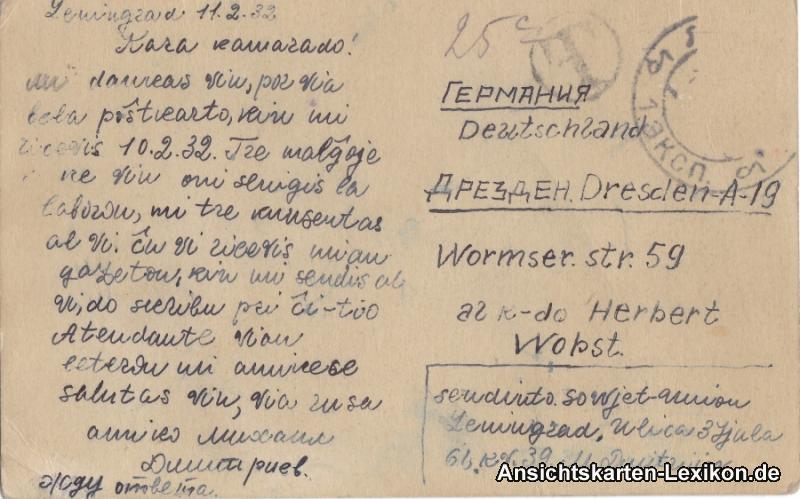 Leningrad 11.2.32
Kara kamarado!
mi dankas vin, por via
bela poŝtkarto, kiun mi
ricevis 10.2.32. Tre malĝoje
ke vin oni senigis la
laboron, mi tre kunsentas
al vi. ĉu vi ricevis mian
gazeton, kiun mi sendis al
vi, do skribu pri ĉi-tio
Atendante vian
leteron mi amikece
salutas vin, via rusa
amiko Михаил
Дмитриев.
жду ответа.
25 c
ГЕРМАНИЯ
Deutschland
ДРЕЗДЕН. Dresden-A-19
Wormser. str. 59
al k-do Herbert
Wobst.
sendinto. sowjet-union
Leningrad, Ulica 3 Ijula
61, кв 39 M.
ЭКСП.
Ansichtskarten-Lexikon.de